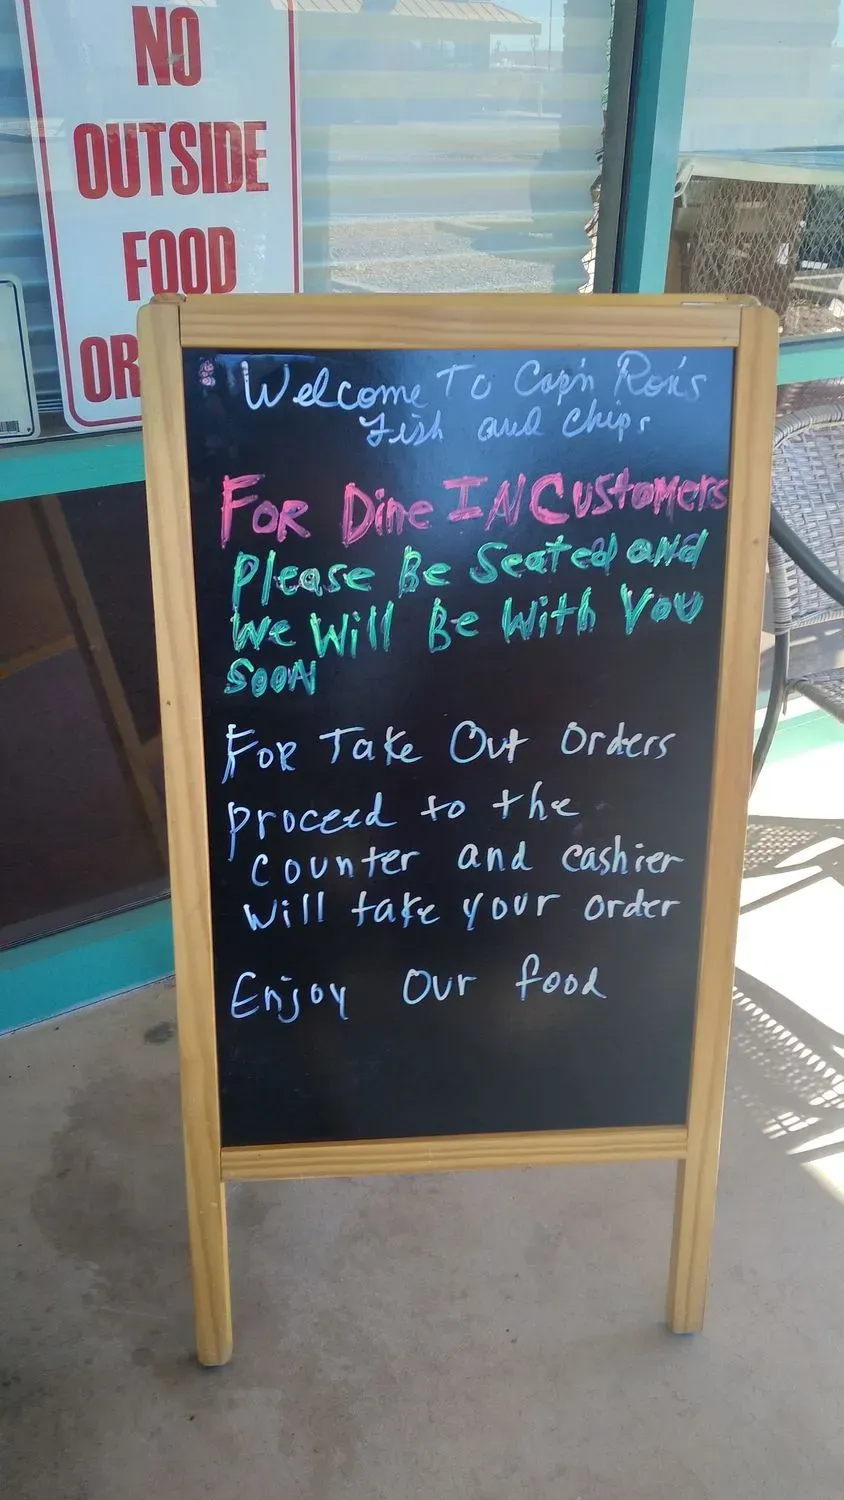 NO
OUTSIDE
FOOD
OR
Welcome To Cap'n Ron's
Fish and Chips
FOR Dine IN Customers
Please Be Seated and
We Will Be With You
SOON
FOR Take Out Orders
proceed to the
counter and cashier
will take your order
Enjoy Our food